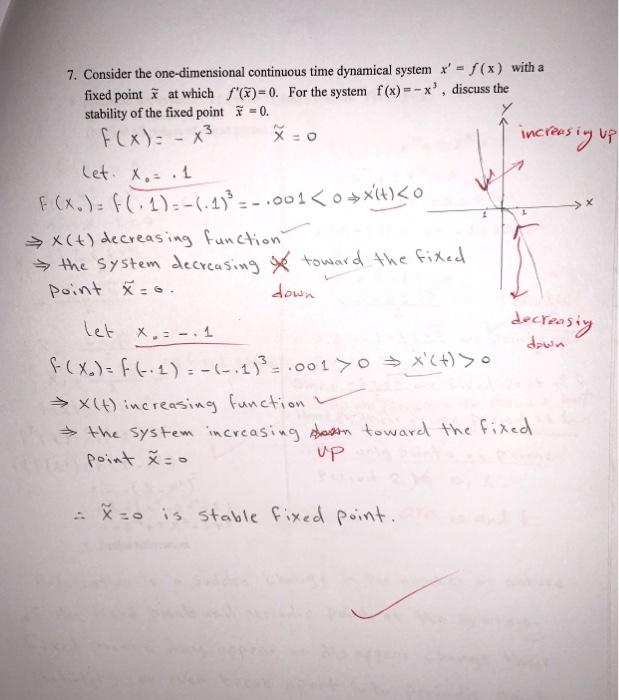 7. Consider the one-dimensional continuous time dynamical system x′ = f(x) with a
fixed point x̃ at which f′(x̃)=0. For the system f(x)=−x³, discuss the
stability of the fixed point x̃ = 0.
f(x)= - x³ x̃ = 0
Let x₀= .1
f(x₀)= f(.1)=-(.1)³=-.001<0⇒x'(t)<0
⇒ x(t) decreasing function
⇒ the system decreasing toward the fixed
down
point x̃=0.
let x₀=-.1
f(x₀)=f(-.1)=-(-.1)³=.001>0 ⇒ x'(t)>0
⇒ x(t) increasing function
⇒ the system increasing down toward the fixed
up
point x̃=0
∴ x̃=0 is stable fixed point.
Y
increasiy up
x
1 1
decreasiy
down